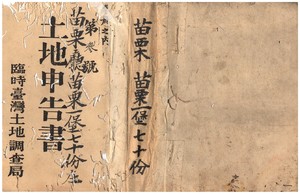 苗栗廳苗栗一堡七十份庄
土地申告書
臨時臺灣土地調查局
苗栗 苗栗一堡七十份